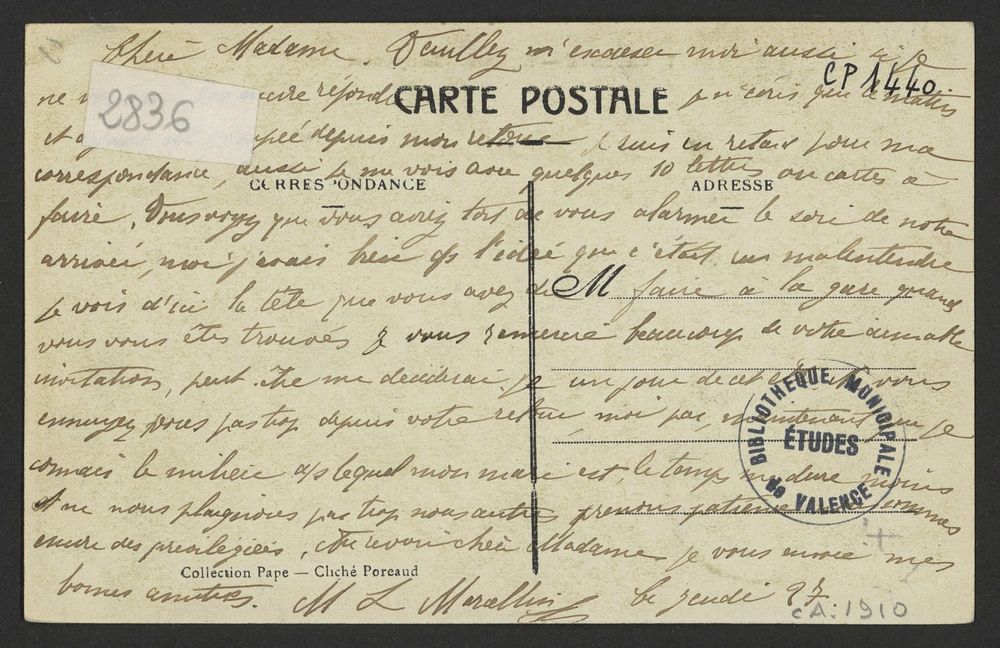 Chère Madame, Veuillez m'excuser moi aussi si je
CP 1440
ne répondre je n'écris que ce matin
2836
CARTE POSTALE
et depuis mon retour je suis en retard pour ma
correspondance, aussi je me vois avec quelques 10 lettres ou cartes à
CORRESPONDANCE
ADRESSE
faire. Vous voyez que vous avez tort de vous alarmer le soir de notre
arrivée, moi j'avais bien l'idée que c'était un malentendu
je vois d'ici la tête que vous avez dû faire à la gare quand
M
vous vous êtes trouvés vous remercie beaucoup de votre aimable
invitation, peut être me déciderai-je un jour de cet été vous
ennuyez vous pas trop depuis votre retour, moi pas, maintenant que je
connais le milieu ds lequel mon mari est, le temps me dure moins
et ne nous plaignons pas trop nous autres prenons patience sommes
encore des privilégiées, Au revoir chère Madame je vous envoie mes
Collection Pape — Cliché Poreaud
bonnes amitiés. M L le jeudi 27
BIBLIOTHEQUE MUNICIPALE
ÉTUDES
de VALENCE
CA: 1910